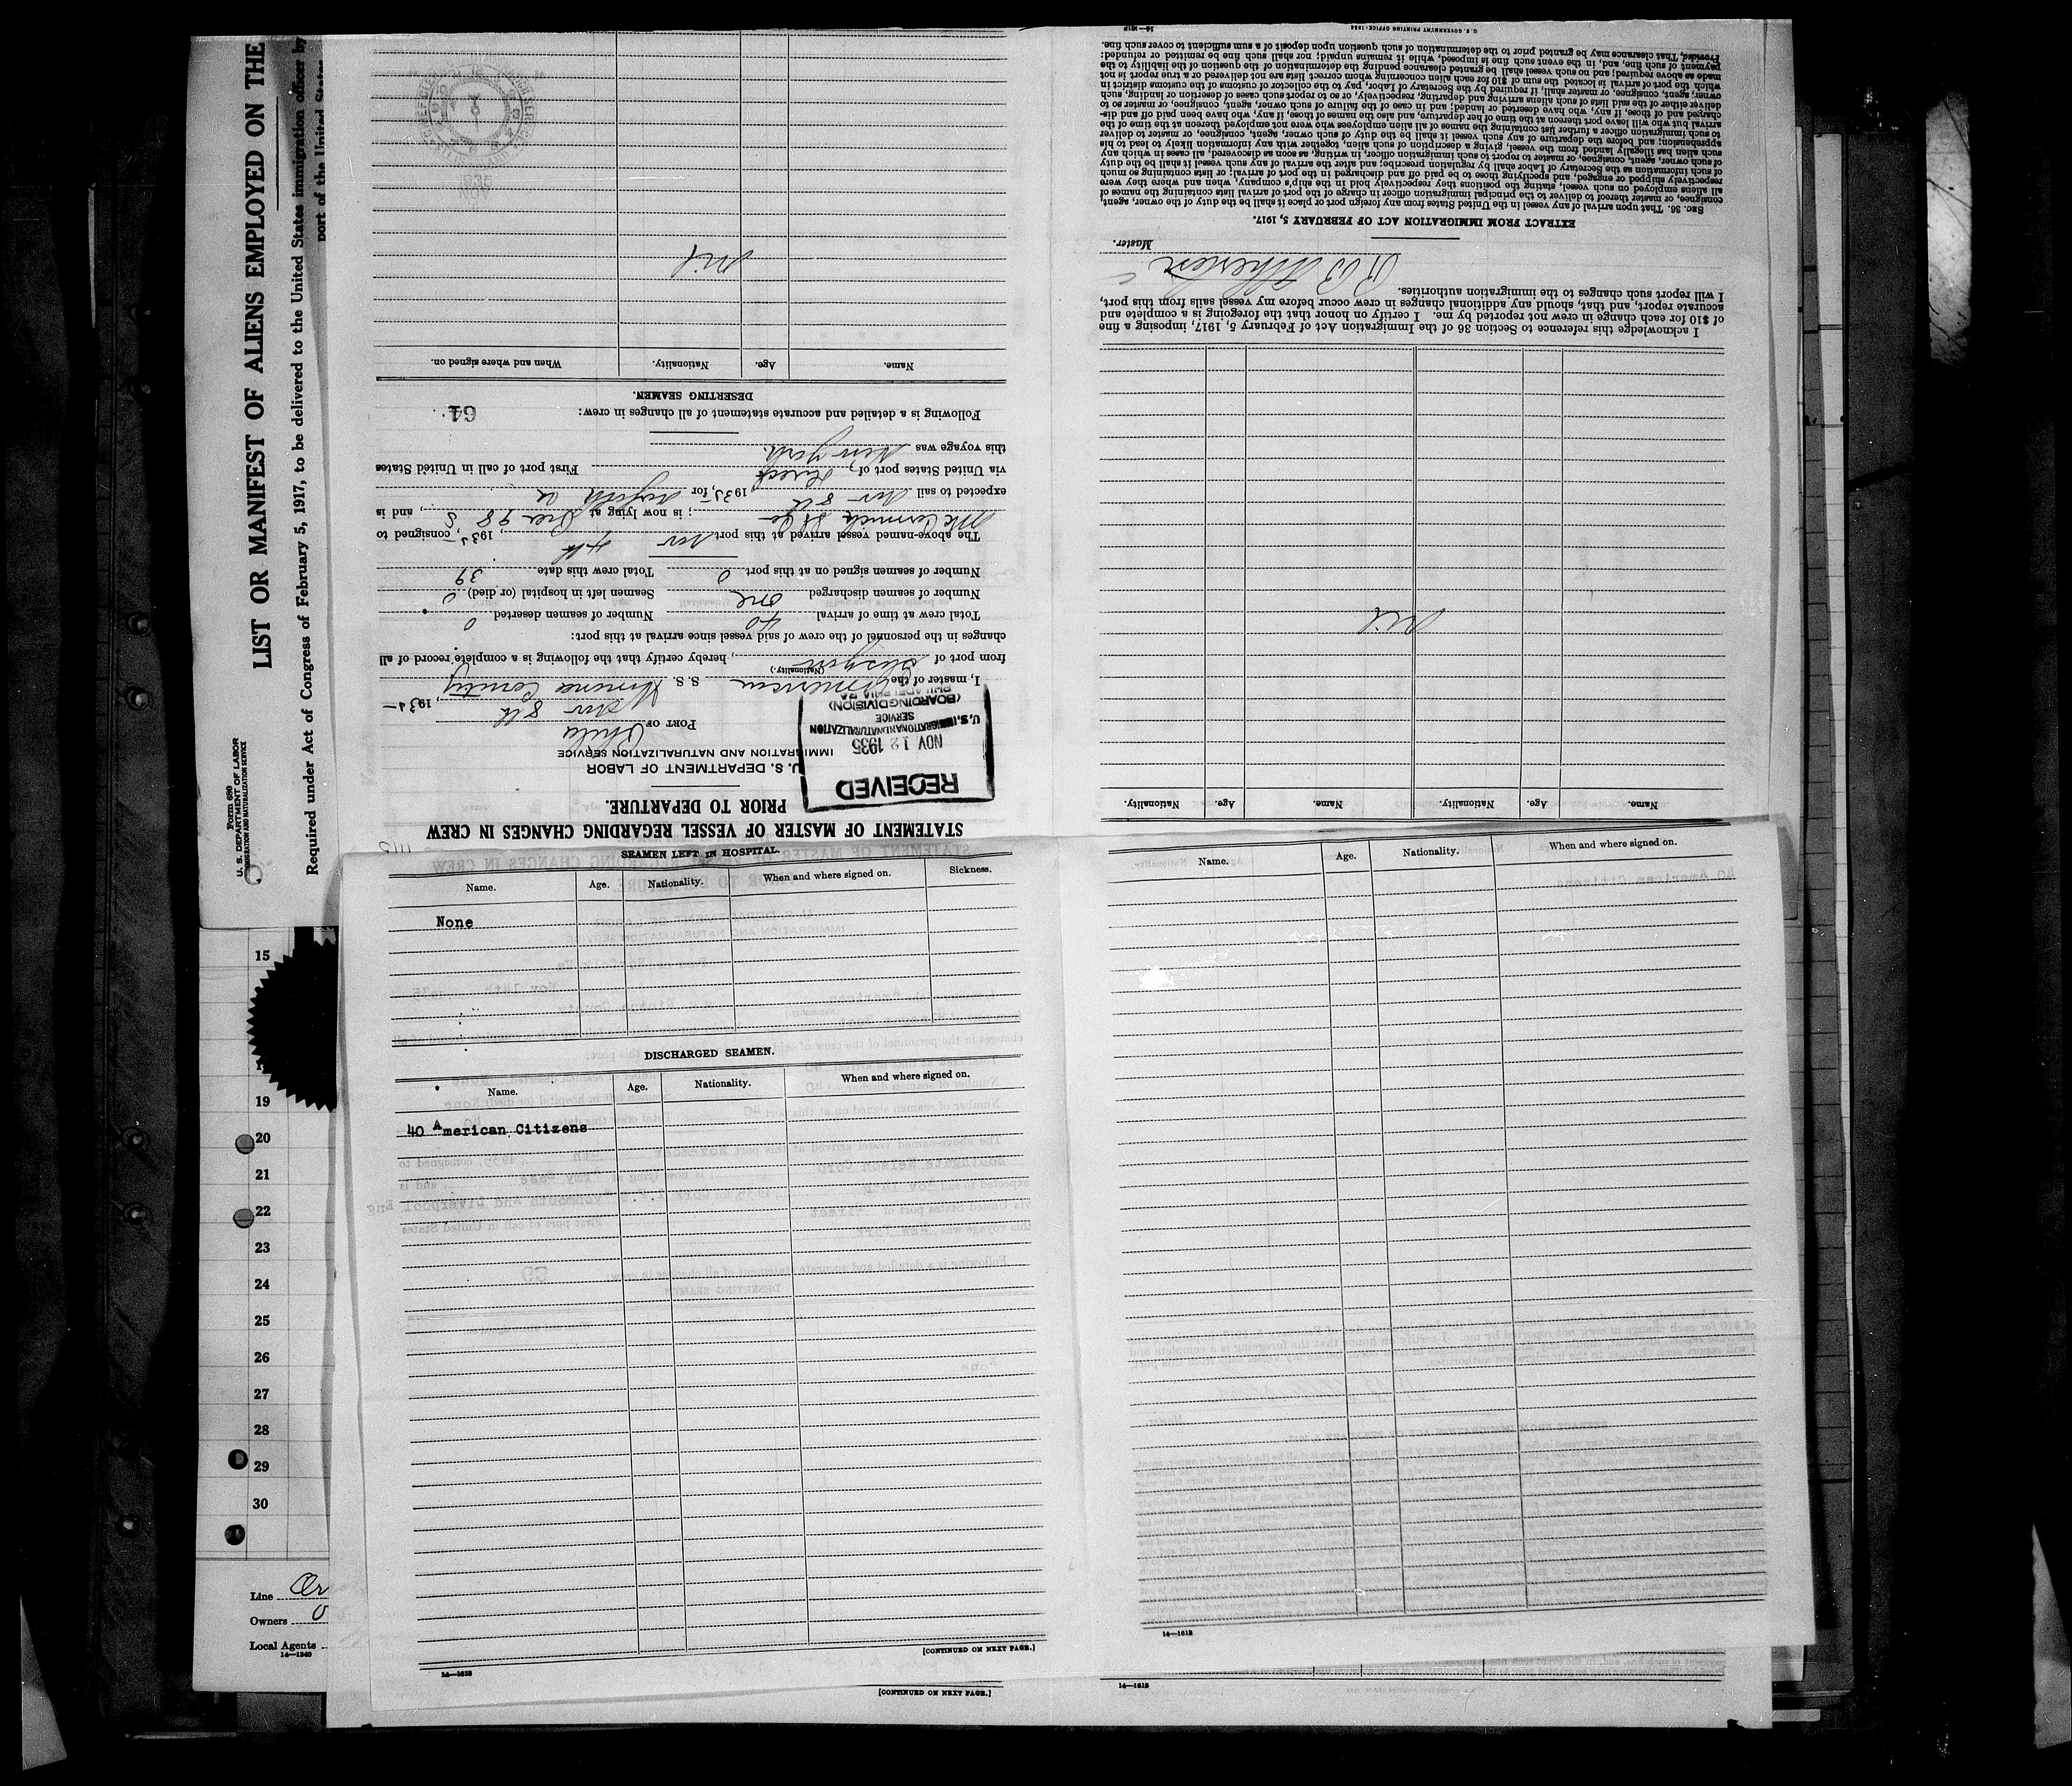 Form 680
U. S. DEPARTMENT OF LABOR
IMMIGRATION AND NATURALIZATION SERVICE
LIST OR MANIFEST OF ALIENS EMPLOYED ON THE
Required under Act of Congress of February 5, 1917, to be delivered to the United States immigration officer by
port of the United States
STATEMENT OF MASTER OF VESSEL REGARDING CHANGES IN CREW
PRIOR TO DEPARTURE.
U. S. DEPARTMENT OF LABOR
IMMIGRATION AND NATURALIZATION SERVICE
RECEIVED
NOV 12 1935
U. S. IMMIGRATION AND NATURALIZATION
SERVICE
(BOARDING DIVISION)
PHILADELPHIA PA
PORT OF Phila
Nov 8th, 1935
I, master of the American S. S. County
(Nationality.)
from port of Glasgow, hereby certify that the following is a complete record of all
changes in the personnel of the crew of said vessel since arrival at this port:
Total crew at time of arrival 40 Number of seamen deserted 0
Number of seamen discharged one Seamen left in hospital (or died) 0
Number of seamen signed on at this port 0 Total crew this date 39
The above-named vessel arrived at this port Nov 4th, 1935, consigned to
McCormick SS Co; is now lying at Pier 98 S, and is
expected to sail Nov 8th, 1935, for Norfolk Va
via United States port of direct First port of call in United States
this voyage was New York.
Following is a detailed and accurate statement of all changes in crew: 64
DESERTING SEAMEN.
Name. Age. Nationality. When and where signed on.
Nil
1935
NOV
Name. Age. Nationality. Name. Age. Nationality.
Nil
I acknowledge this reference to Section 36 of the Immigration Act of February 5, 1917, imposing a fine
of $10 for each change in crew not reported by me. I certify on honor that the foregoing is a complete and
accurate report, and that, should any additional changes in crew occur before my vessel sails from this port,
I will report such changes to the immigration authorities.
Master.
EXTRACT FROM IMMIGRATION ACT OF FEBRUARY 5, 1917.
SEC. 36. That upon arrival of any vessel in the United States from any foreign port or place it shall be the duty of the owner, agent,
consignee, or master thereof to deliver to the principal immigration officer in charge of the port of arrival lists containing the names of
all aliens employed on such vessel, stating the positions they respectively hold in the ship's company, when and where they were
respectively shipped or engaged, and specifying those to be paid off and discharged in the port of arrival; or lists containing so much
of such information as the Secretary of Labor shall by regulation prescribe; and after the arrival of any such vessel it shall be the duty
of such owner, agent, consignee, or master to report to such immigration officer, in writing, as soon as discovered, all cases in which any
such alien has illegally landed from the vessel, giving a description of such alien, together with any information likely to lead to his
apprehension; and before the departure of any such vessel it shall be the duty of such owner, agent, consignee, or master to deliver
to such immigration officer a further list containing the names of all alien employees who were not employed thereon at the time of the
arrival but who will leave port thereon at the time of her departure, and also the names of those, if any, who have been paid off and dis-
charged and of those, if any, who have deserted or landed; and in case of the failure of such owner, agent, consignee, or master so to
deliver either of the said lists of such aliens arriving and departing, respectively, or so to report such cases of desertion or landing, such
owner, agent, consignee, or master shall, if required by the Secretary of Labor, pay to the collector of customs of the customs district in
which the port of arrival is located the sum of $10 for each alien concerning whom correct lists are not delivered or a true report is not
made as above required; and no such vessel shall be granted clearance pending the determination of the question of the liability to the
payment of such fine, and, in the event such fine is imposed, while it remains unpaid; nor shall such fine be remitted or refunded:
Provided, That clearance may be granted prior to the determination of such question upon deposit of a sum sufficient to cover such fine.
U. S. GOVERNMENT PRINTING OFFICE: 1934
SEAMEN LEFT IN HOSPITAL.
Name. Age. Nationality. When and where signed on. Sickness.
None
DISCHARGED SEAMEN.
Name. Age. Nationality. When and where signed on.
40 American Citizens
[CONTINUED ON NEXT PAGE.]
14—1618
[CONTINUED ON NEXT PAGE.]
Name. Age. Nationality. When and where signed on.
14—1618
14—1618
15
19
20
21
22
23
24
25
26
27
28
29
30
Line
Owners
Local Agents
14—1240